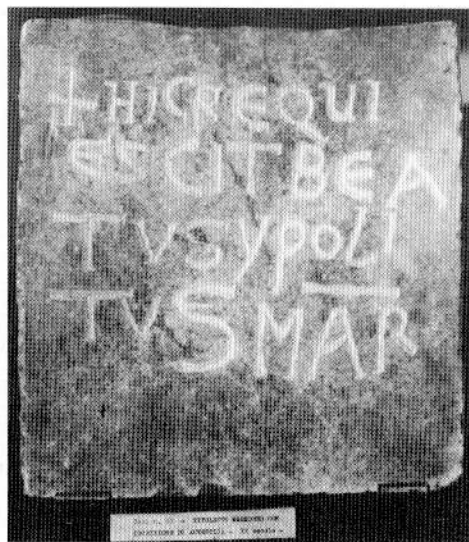 + HIC REQUI
ESCIT BEA
TVS YPOLI
TVS MAR